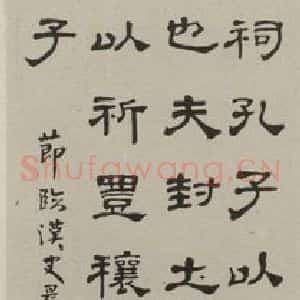 祠孔子以
也夫封土
以祈豊穰
子
節臨漢史晨
Shufawang.CN